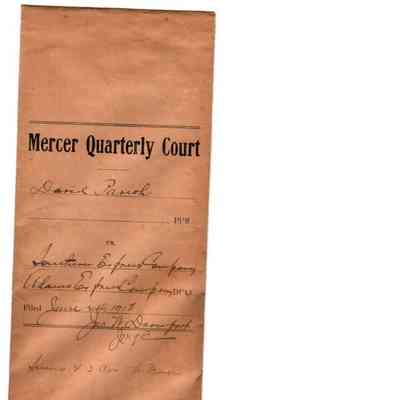 Mercer Quarterly Court
David Parish
Plff.
vs.
Southern Express Company
Adams Express Company Deft.
Filed June 24 1918
Jno W. Davenport